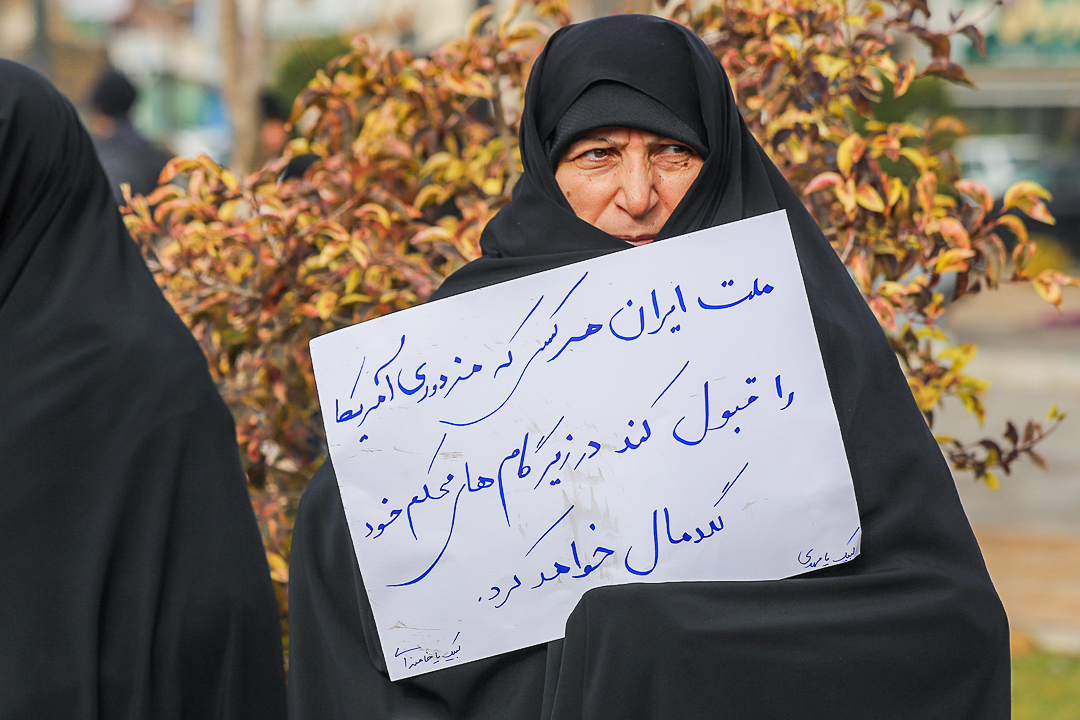 ملت ایران هر کسی که مزدوری آمریکا
را قبول کند در زیر گام های محکم خود
لگدمال خواهد کرد.
لبیک یا مهدی
لبیک یا خامنه ای